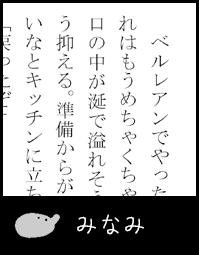 ベルレアンでやった
れはもうめちゃくちゃ
口の中が涎で溢れそう
う抑える。準備からが
いなとキッチンに立ち
「戻ったぞ」
みなみ